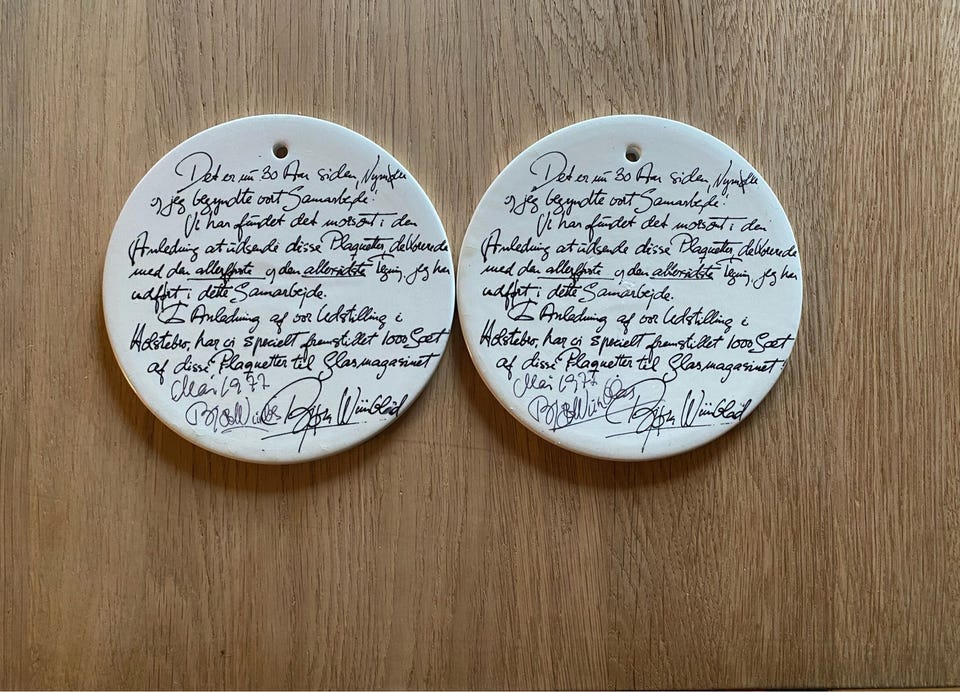 Det er nu 30 Aar siden, Nymølle
og jeg begyndte vort Samarbejde!
Vi har fundet det morsomt i den
Anledning at udsende disse Plaquetter, dekorerede
med den allerførste og den allersidste Tegning, jeg har
udført i dette Samarbejde.
I Anledning af vor Udstilling i
Holstebro, har vi specielt fremstillet 1000 Sæt
af disse Plaquetter til Glasmagasinet!
Mai 1977
Bjørn Wiinblad Bjørn Wiinblad
Det er nu 30 Aar siden, Nymølle
og jeg begyndte vort Samarbejde!
Vi har fundet det morsomt i den
Anledning at udsende disse Plaquetter, dekorerede
med den allerførste og den allersidste Tegning, jeg har
udført i dette Samarbejde.
I Anledning af vor Udstilling i
Holstebro, har vi specielt fremstillet 1000 Sæt
af disse Plaquetter til Glasmagasinet!
Mai 1977
Bjørn Wiinblad Bjørn Wiinblad